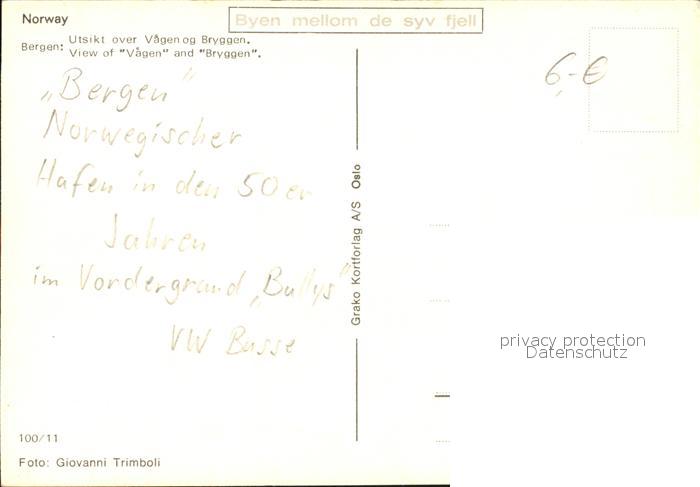 Norway
Byen mellom de syv fjell
Bergen: Utsikt over Vågen og Bryggen.
View of "Vågen" and "Bryggen".
6,- €
„Bergen"
Norwegischer
Hafen in den 50er
Jahren
im Vordergrund „Bullys"
VW Busse
Grako Kortforlag A/S Oslo
privacy protection
Datenschutz
100/11
Foto: Giovanni Trimboli